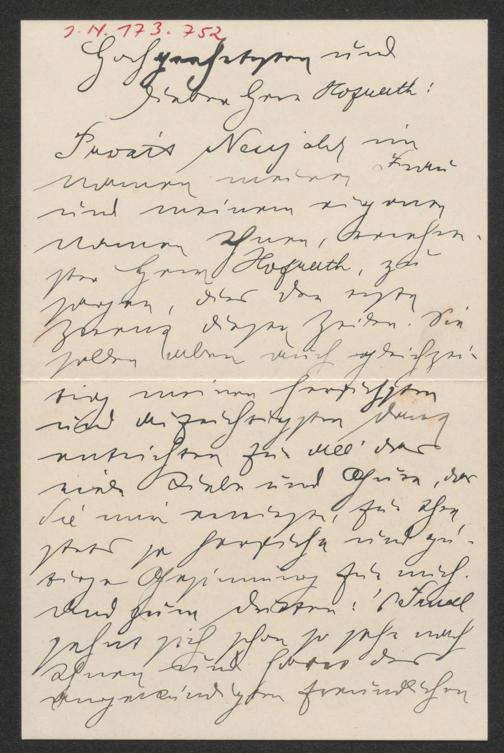 J.N. 173.752
Hochgeschetzten und
Lieber Herr Hofrath!
Prosit Neujahr im
Namen meiner Frau
und meinem eigenen
Namen Ihnen, verehr-
ter Herr Hofrath, zu
sagen, das der erste
Zweck dieser Zeilen. Sie
sollen aber auch gleichzei-
tig meinen herzlichsten
und aufrichtigsten Dank
entrichten für all' das
viele Liebe und Gute, das
Sie mir erwiesen, für Ihre
stets so herzliche und gü-
tige Gesinnung für mich.
Und zum dritten:
sehnt sich schon so sehr nach
Ihnen und
angekündigten freundlichen